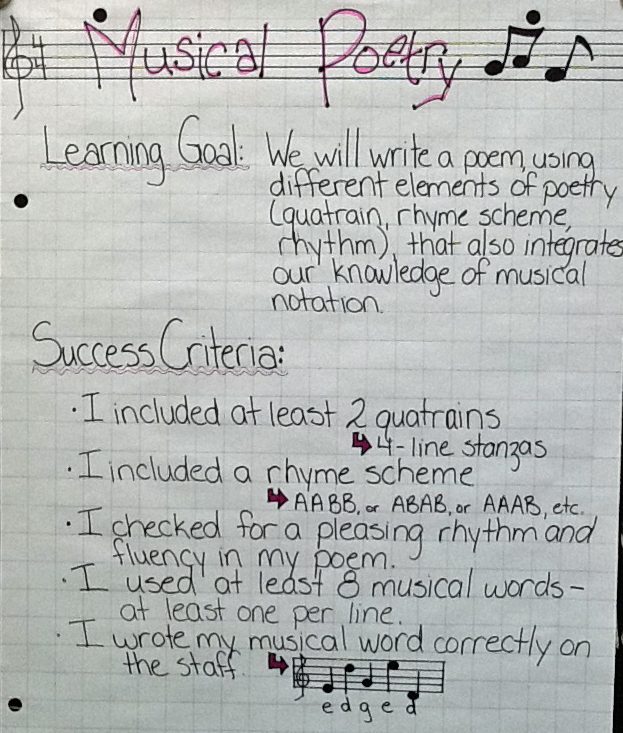 Musical Poetry
Learning Goal: We will write a poem, using
different elements of poetry
(quatrain, rhyme scheme,
rhythm), that also integrates
our knowledge of musical
notation.
Success Criteria:
· I included at least 2 quatrains
4-line stanzas
· I included a rhyme scheme
AABB, or ABAB, or AAAB, etc.
· I checked for a pleasing rhythm and
fluency in my poem.
· I used at least 8 musical words-
at least one per line.
· I wrote my musical word correctly on
the staff.
e d g e d